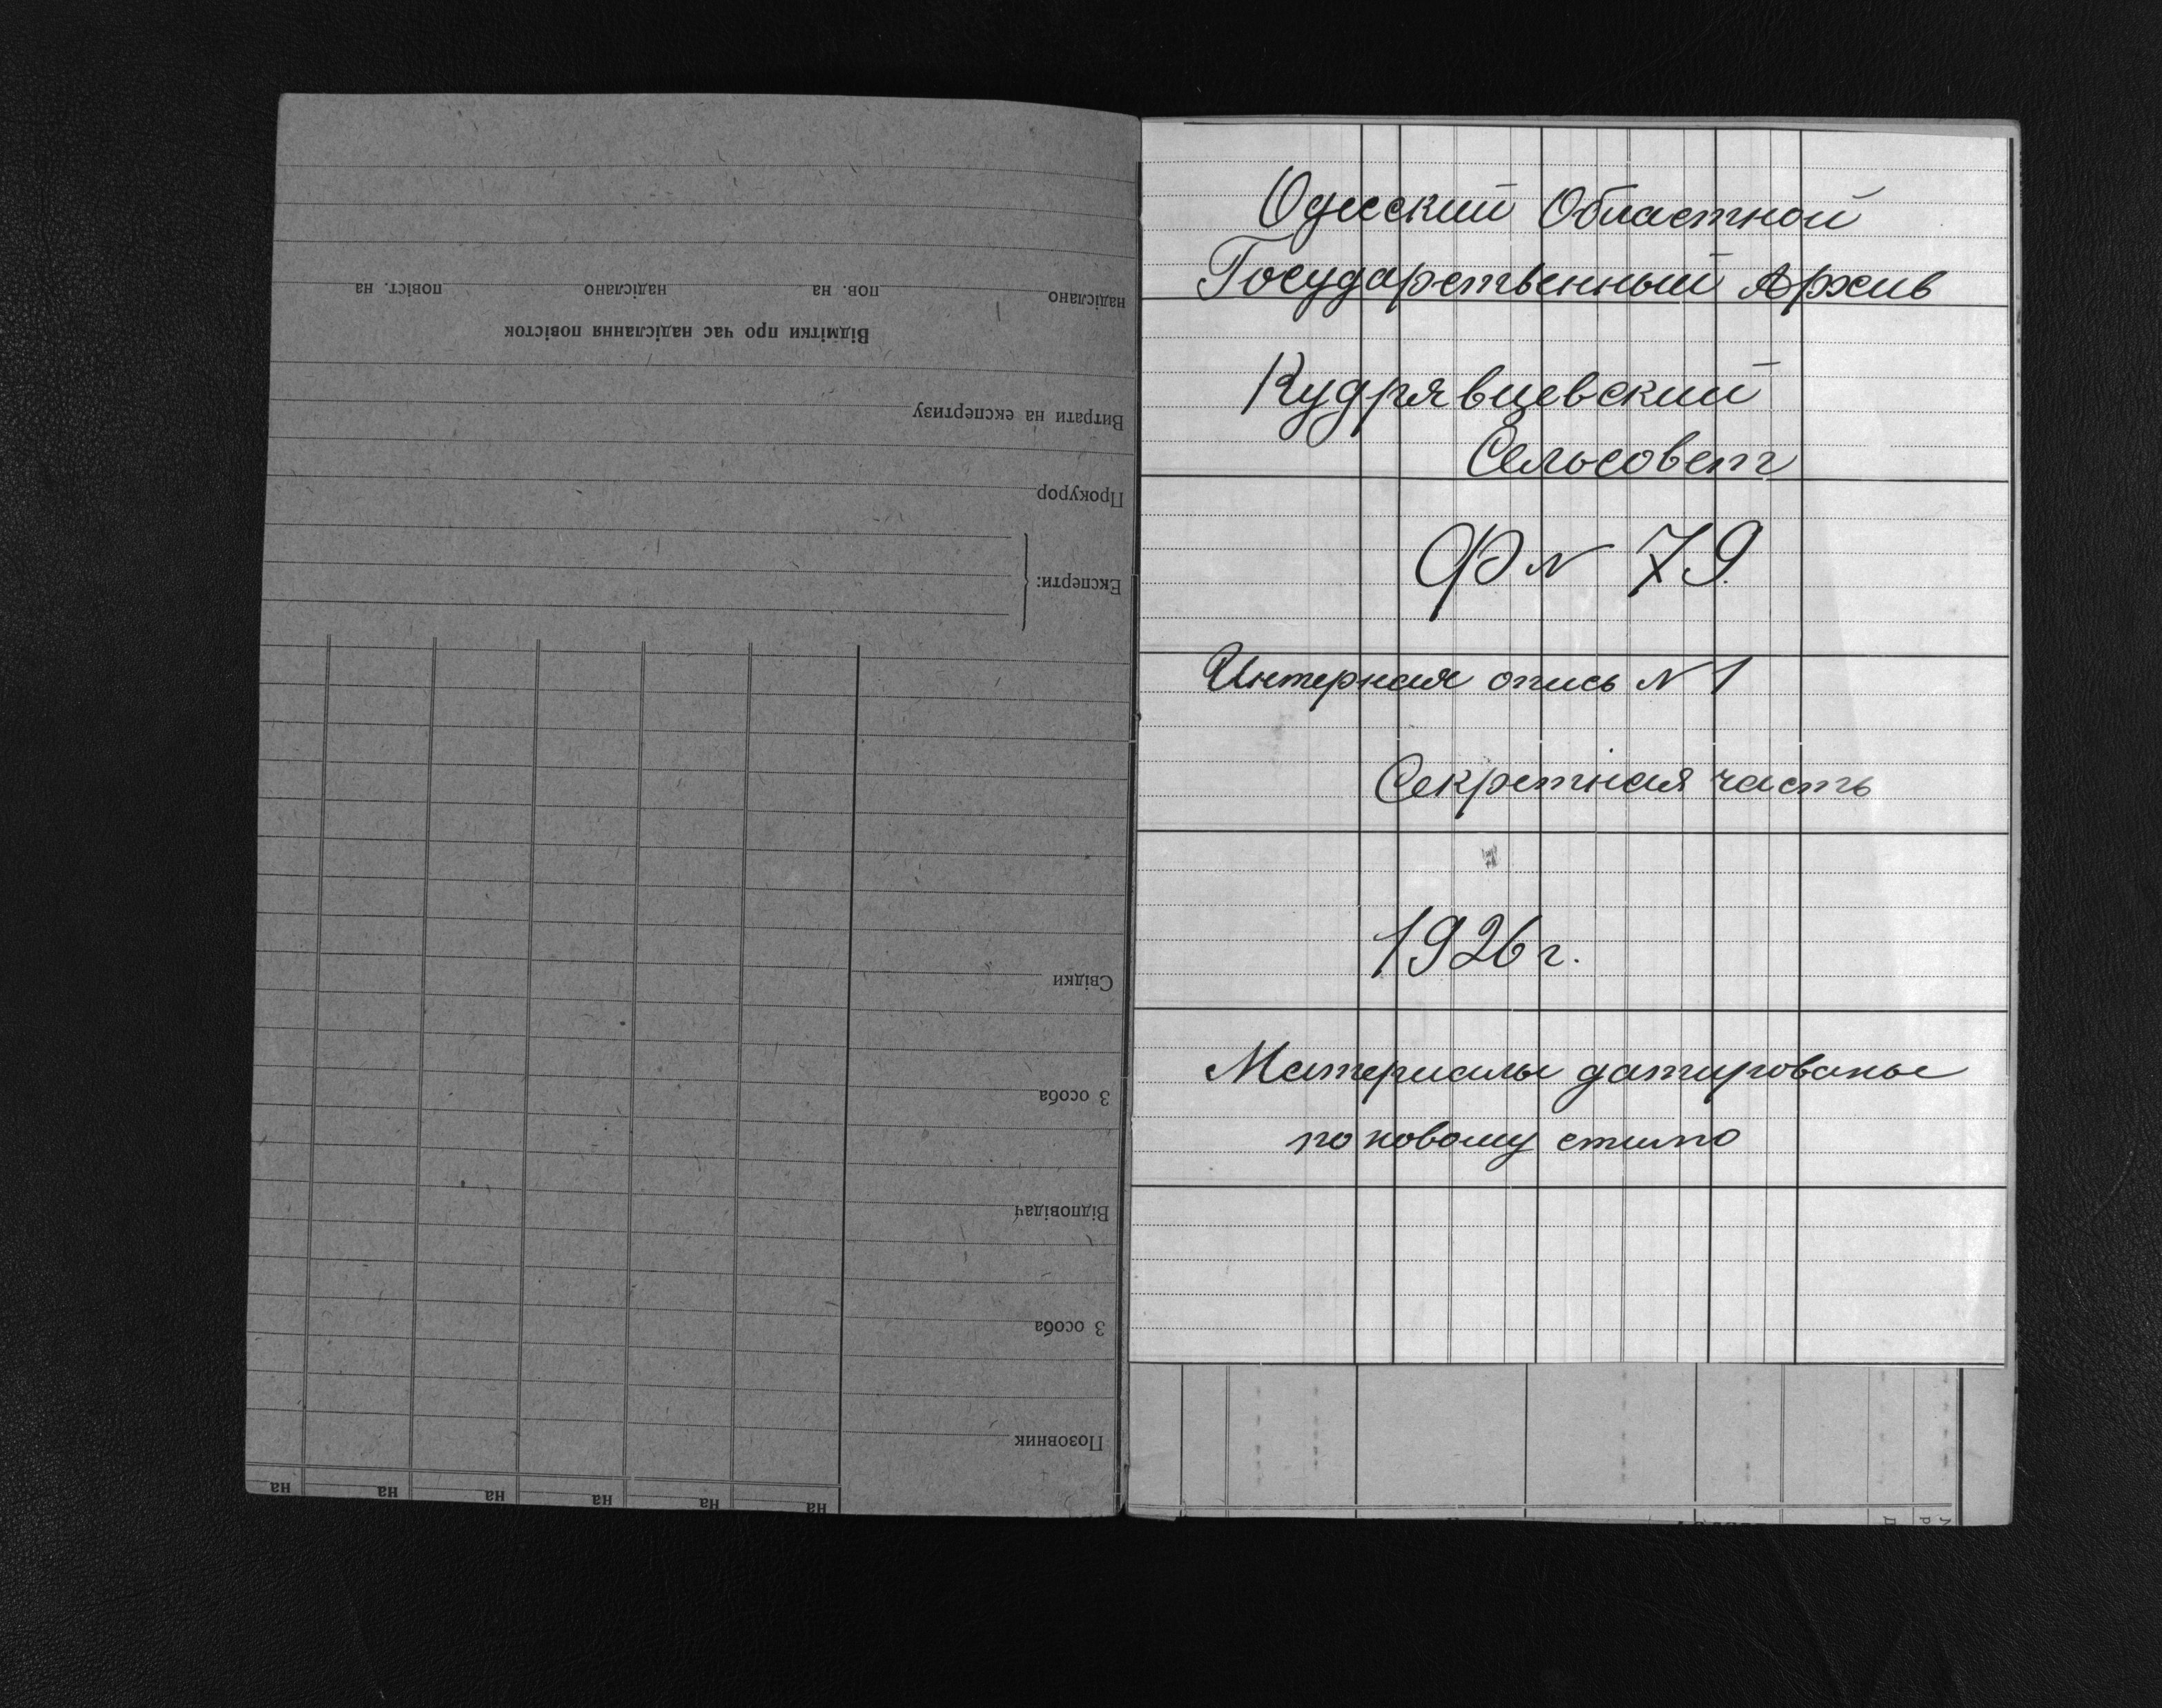 Одесский Областной
Государственный Архив
Кудрявцевский
Сельсовет
Ф N 79.
Интерная опись N 1
Секретная часть
1926 г.
Материалы датированы
по новому стилю
на на на на на на
Позовник
3 особа
Відповідач
3 особа
Свідки
Експерти:
Прокурор
Витрати на експертизу
Відмітки про час надіслання повісток
надіслано пов. на надіслано повіст. на